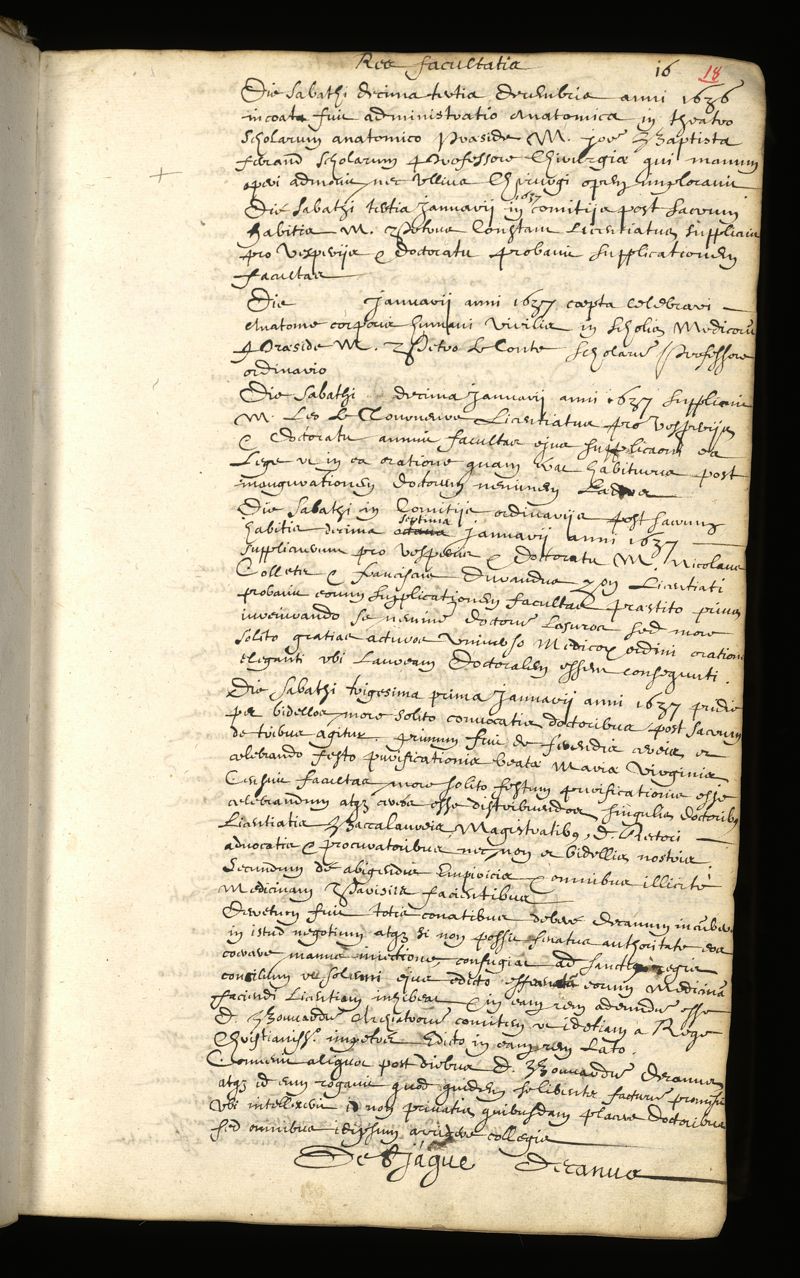 Res facultatis 16 18
Die Sabathi decima tertia Decembris anni 1636
incoata fuit administratio Anatomica in theatro
scholarum anatomico Præside M. Joe Baptista
ferrand scholarum Professore Chirurgiæ qui manum
operi admovit nec ullius Chirurgi opem imploravit
Die Sabathi tertia Januarij 1637 in comitijs post sacrum
habitis M. Petrus Constant Licentiatus supplicavit
pro Vesperijs & Doctoratu probavit supplicationem
facultas
Die Januarij anni 1637 cœpta celebrari
Anatome corporis humani virilis in scholis Medicorum
Præside M. Petro Le Conte scholarum Professore
ordinario
Die Sabathi decima Januarij anni 1637 supplicavit
M. Leo Le Tourneurs Licentiatus pro vesperijs
& Doctoratu annuit facultas ejus supplicaoni ea
Lege ut in ea oratione quam erat habiturus post
inaugurationem doctorum neminem Lædat
Die Sabathi in Comitijs ordinarijs post sacrum
habitis decima septima Januarij anni 1637
supplicarunt pro vesperijs & doctoratu M. Nicolaus
Collets & franciscus Durandus Licentiati
probavit eorum supplicationem facultas præstito prius
jurejurando se nemine doctorum Læsuros sed more
solito gratias acturos universo Medicorum ordini oratione
eleganti ubi Lauream Doctoralem essent consequuti.
Die Sabathi trigesima prima Januarij anni 1637 pridie
per bidellos more solito convocatis doctoribus post sacrum
de tribus agitur. primum fuit de ferendis cereis et
celebrando festo purificationis beatæ Mariæ Virginis
Censuit facultas more solito festum purificationis esse
celebrandum atque cereos esse distribuendos singulis doctoribus
Licentiatis Baccalaureis, Magistratibus, D. Rectori
advocatis & procuratoribus nec non et bidellis nostris.
Secundum de abigendis Empiricis & omnibus illicite
Medicinam Parisiis facientibus
Decretum fuit totis conatibus debere Decanum incumbere
in istud negotium atque si non possit senatus authoritate eos
coercere manus injectione confugiat ad sanctius regis
consilium ut solemni ejus edicto eorum Medicinæ
faciendi Licentiam inhibeat & in eam rem adeundum esse
D. Bouvardum Archiatrorum comitem ut id etiam a Rege
Christianiss.o impetret Edicto in eam rem Lato.
Convenit aliquot post diebus D. Bouvardum Decanus
atque id eum rogavit quod quidem se libenter facturum promisit
ubi intellexerit id non privatis quibusdam placere Doctoribus
sed omnibus idipsum arridere collegis
Decanus